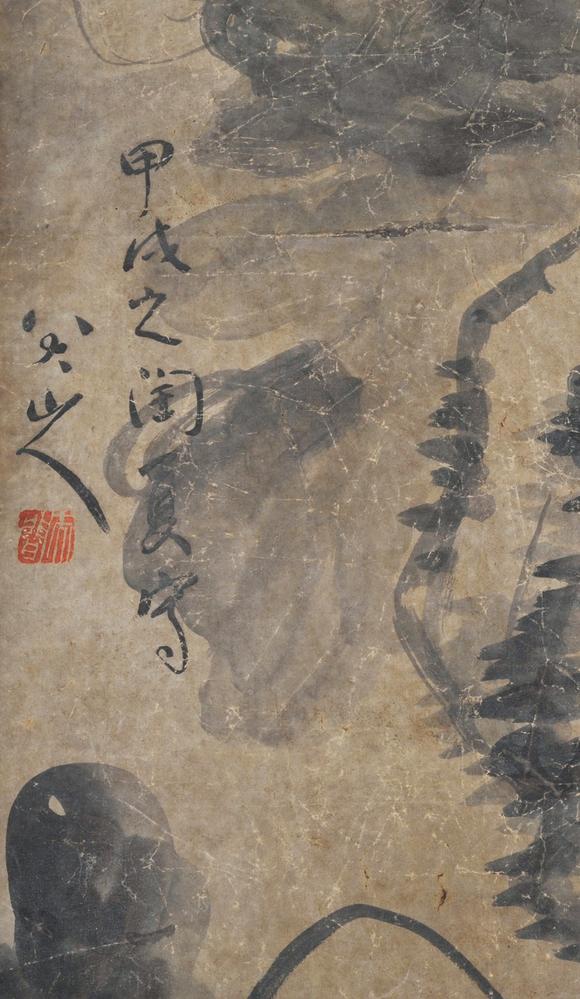 甲戌之閏夏寫
八大山人